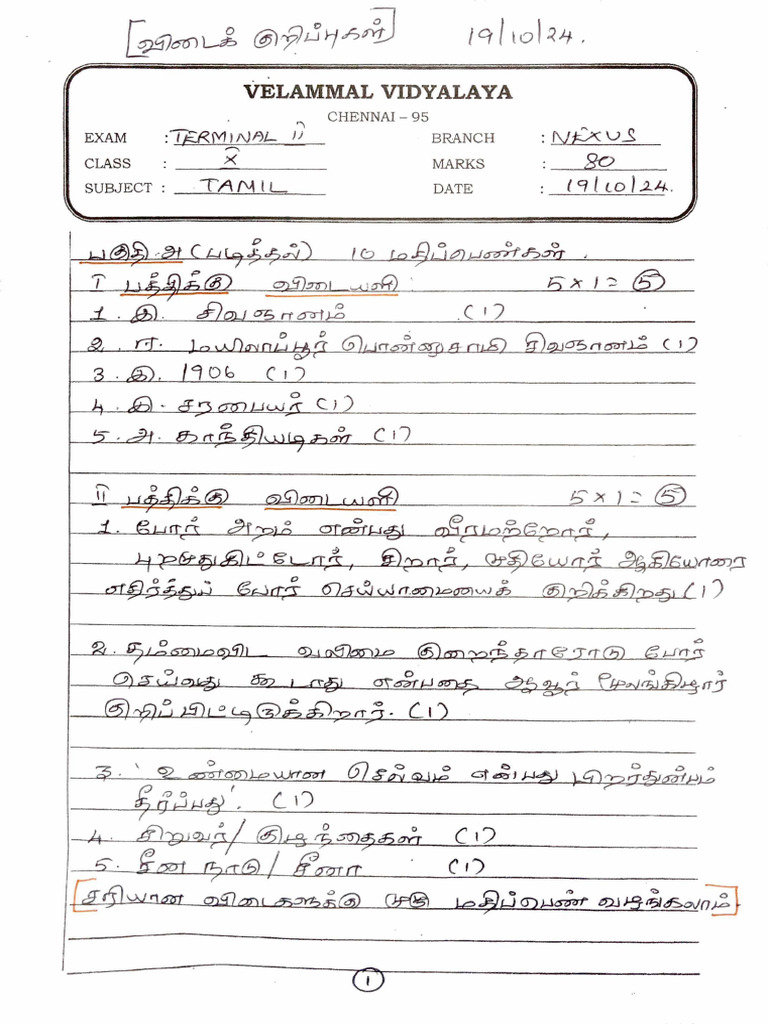 [விடைக் குறிப்புகள்] 19/10/24.
VELAMMAL VIDYALAYA
CHENNAI – 95
EXAM : TERMINAL II BRANCH : NEXUS
CLASS : X MARKS : 80
SUBJECT : TAMIL DATE : 19/10/24.
பகுதி-அ (படித்தல்) 10 மதிப்பெண்கள்.
I பத்திக்கு விடையளி: 5 x 1 = 5
1. இ. சிவஞானம் (1)
2. ஈ. மயிலாப்பூர் பொன்னுசாமி சிவஞானம் (1)
3. இ. 1906 (1)
4. இ. சரபையர் (1)
5. அ. காந்தியடிகள் (1)
II பத்திக்கு விடையளி 5 x 1 = 5
1. போர் அறம் என்பது வீரமற்றோர்,
புறமுதுகிட்டோர், சிறார், முதியோர் ஆகியோரை
எதிர்த்துப் போர் செய்யாமையைக் குறிக்கிறது (1)
2. தம்மைவிட வலிமை குறைந்தாரோடு போர்
செய்வது கூடாது என்பதை ஆவூர் மூலங்கிழார்
குறிப்பிட்டிருக்கிறார். (1)
3. 'உண்மையான செல்வம் என்பது பிறர்துன்பம்
தீர்ப்பது'. (1)
4. சிறுவர்/ குழந்தைகள் (1)
5. சீன நாடு/ சீனா (1)
[சரியான விடைகளுக்கு முழு மதிப்பெண் வழங்கலாம்]
1